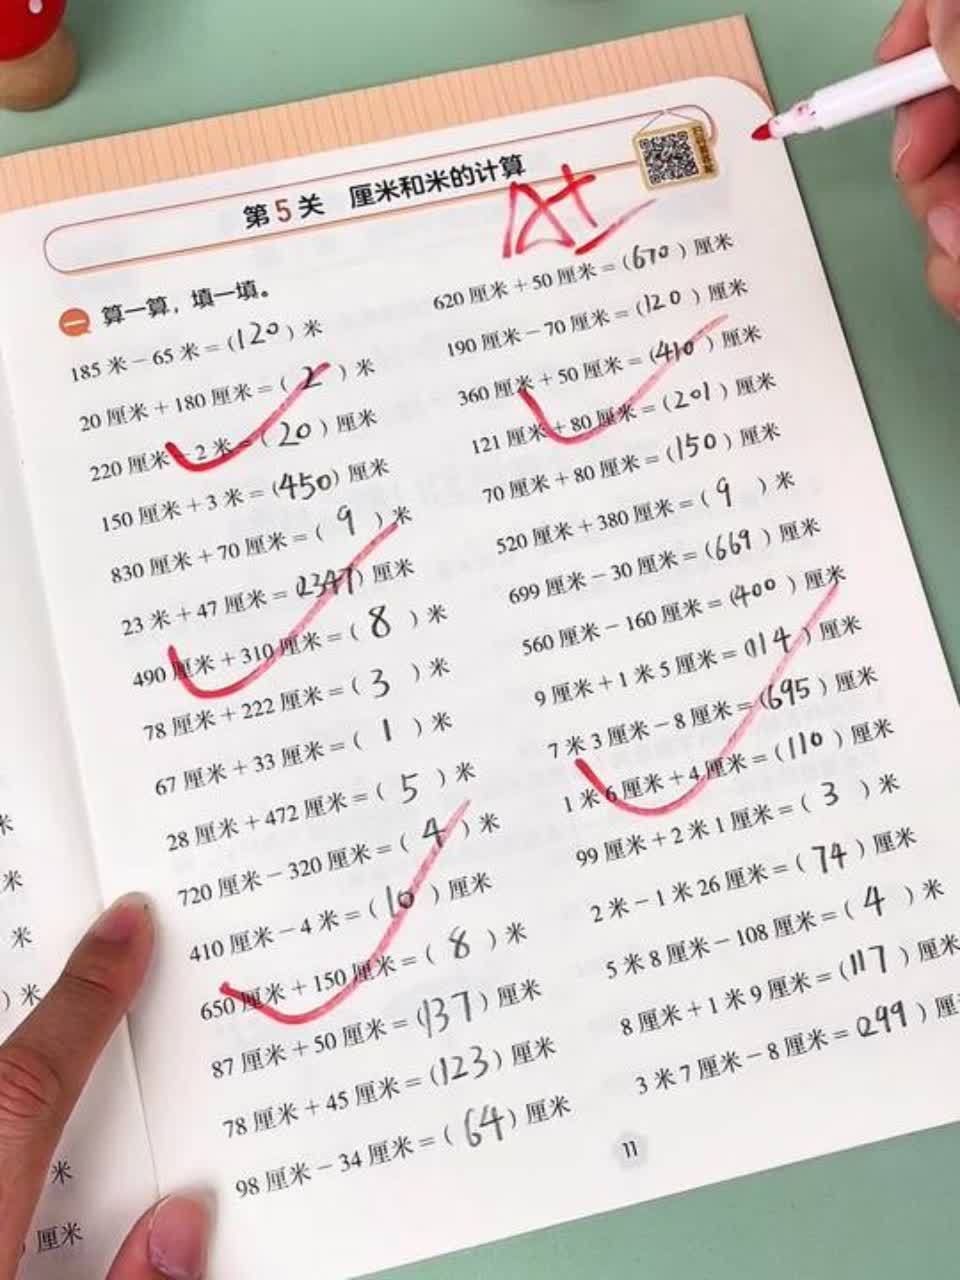 第5关 厘米和米的计算
A+
一 算一算，填一填。
185米－65米＝(120)米
20厘米＋180厘米＝(2)米
220厘米－2米＝(20)厘米
150厘米＋3米＝(450)厘米
830厘米＋70厘米＝(9)米
23米＋47厘米＝(2347)厘米
490厘米＋310厘米＝(8)米
78厘米＋222厘米＝(3)米
67厘米＋33厘米＝(1)米
28厘米＋472厘米＝(5)米
720厘米－320厘米＝(4)米
410厘米－4米＝(10)厘米
650厘米＋150厘米＝(8)米
87厘米＋50厘米＝(137)厘米
78厘米＋45厘米＝(123)厘米
98厘米－34厘米＝(64)厘米
620厘米＋50厘米＝(670)厘米
190厘米－70厘米＝(120)厘米
360厘米＋50厘米＝(410)厘米
121厘米＋80厘米＝(201)厘米
70厘米＋80厘米＝(150)厘米
520厘米＋380厘米＝(9)米
699厘米－30厘米＝(669)厘米
560厘米－160厘米＝(400)厘米
9厘米＋1米5厘米＝(114)厘米
7米3厘米－8厘米＝(695)厘米
1米6厘米＋4厘米＝(110)厘米
99厘米＋2米1厘米＝(3)米
2米－1米26厘米＝(74)厘米
5米8厘米－108厘米＝(4)米
8厘米＋1米9厘米＝(117)厘米
3米7厘米－8厘米＝(299)厘
11
米
米
米
)米
米
)厘米